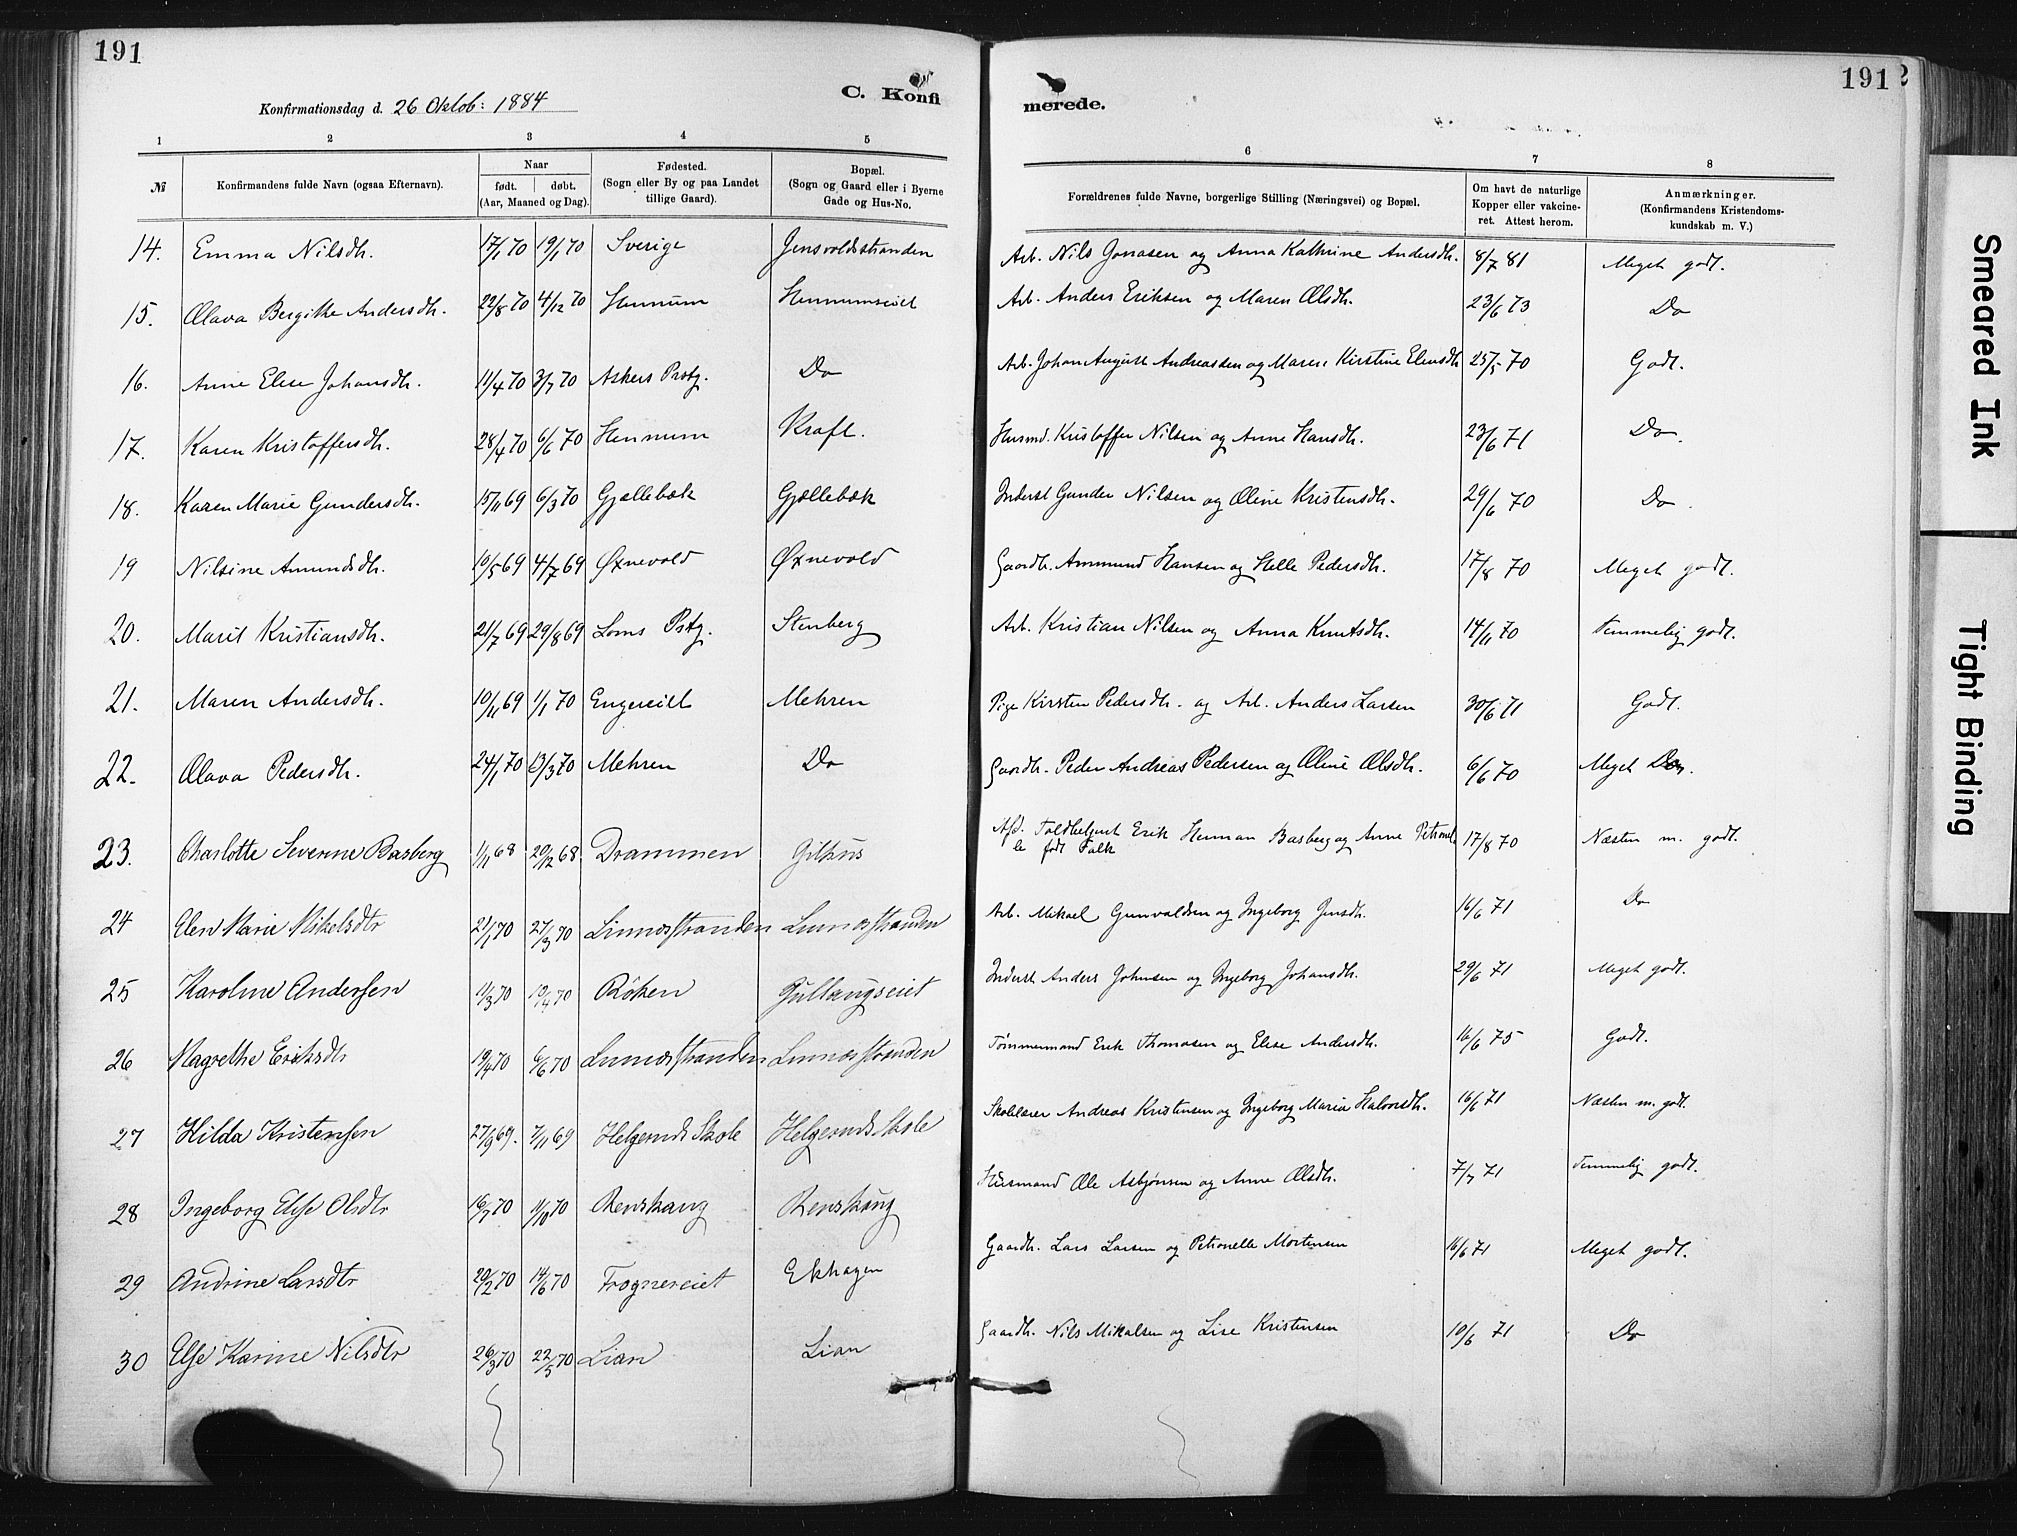 191
191
Konfirmationsdag d. 26 Oktob: 1884
C. Konfi
merede.
1 2 3 4 5 6 7 8
№ Konfirmandens fulde Navn (ogsaa Efternavn). Naar født. døbt. (Aar, Maaned og Dag). Fødested. (Sogn eller By og paa Landet tillige Gaard). Bopæl. (Sogn og Gaard eller i Byerne Gade og Hus-No. Forældrenes fulde Navne, borgerlige Stilling (Næringsvei) og Bopæl. Om havt de naturlige Kopper eller vakcineret. Attest herom. Anmærkninger. (Konfirmandens Kristendomskundskab m. V.)
14. Emma Nilsdh. 17/1 70 19/1 70 Sverige Jensvoldsstranden Arb. Nils Jonasen og Anna Kathrine Andersdh. 8/7 81 Meget godt.
15. Olava Bergithe Andersdh. 22/8 70 4/12 70 Hennum Hennumseiet Arb. Anders Eriksen og Maren Olsdh. 23/6 73 Do
16. Anne Elise Johansdh. 11/4 70 3/7 70 Askers Prstg. Do Arb. Johan August Andreassen og Maren Kirstine Elensdh 25/5 70 Godt.
17. Karen Kristoffersdh. 28/4 70 6/6 70 Hennum Kraft. Husmd. Kristoffer Nilsen og Anne Hansdh. 23/6 71 Do.
18. Karen Marie Gundersdh. 15/11 69 6/3 70 Gjellebæk Gjellebæk Inderst Gunder Nilsen og Oline Kristensdh. 29/6 70 Do.
19 Nilsine Amundsdh. 10/5 69 4/7 69 Øxnevold Øxnevold Gaardb. Ammund Hansen og Helle Pedersdh. 17/8 70 Meget godt.
20. Marit Kristiansdh. 21/7 69 29/8 69 Loms Pstg. Stenberg Arb. Kristian Nilsen og Anna Knutsdh. 14/11 70 Temmelig godt.
21. Maren Andersdh. 10/11 69 1/1 70 Engereiet Mehren Pige Kirsten Pedersdh. og Arb. Anders Larsen 30/6 71 Godt.
22. Olava Pedersdh. 24/1 70 13/3 70 Mehren Do Gaardb. Peder Andreas Pedersen og Oline Olsdh. 6/6 70 Meget Do.
23. Charlotte Severine Basberg 1/11 68 20/12 68 Drammen Gilhus Afd. Toldbetjent Erik Herman Basberg og Anne Petronelle født Falk 17/8 70 Næsten m. godt.
24 Elen Marie Mikelsdtr 21/1 70 27/3 70 Linnesstranden Linnesstranden Arb. Mikael Gunvaldsen og Ingeborg Jensdh. 16/6 71 Do
25 Karoline Andersen 11/3 70 19/4 70 Røken Gullaugseiet Inderst Anders Johnsen og Ingeborg Johansdh. 29/6 71 Meget godt.
26 Magrethe Eriksdtr 19/4 70 6/6 70 Linnesstranden Linnesstranden Tømmermand Erik Thomasen og Elise Andersdh. 16/6 75 Godt.
27 Hilda Kristensen 27/9 69. 7/11 69 Helgerud Skole Helgeruds Skole Skolelærer Andreas Kristensen og Ingeborg Maria Halvorsdh. 16/6 71 Næsten m. godt.
28 Ingeborg Else Olsdtr 16/7 70 11/10 70 Renskaug Renskaug Husmand Ole Asbjønsen og Anne Olsdh. 7/7 71 Temmelig godt.
29 Andrine Larsdtr 20/2 70 14/6 70 Frognereiet Ekhagen Gaardb. Lars Larsen og Petronelle Mortensen 16/6 71 Meget godt.
30 Else Karine Nilsdtr 26/3 70 22/5 70 Lian Lian Gaardb. Nils Mikalsen og Lise Kristensen 10/6 71 Do
Smeared Ink
Tight Binding